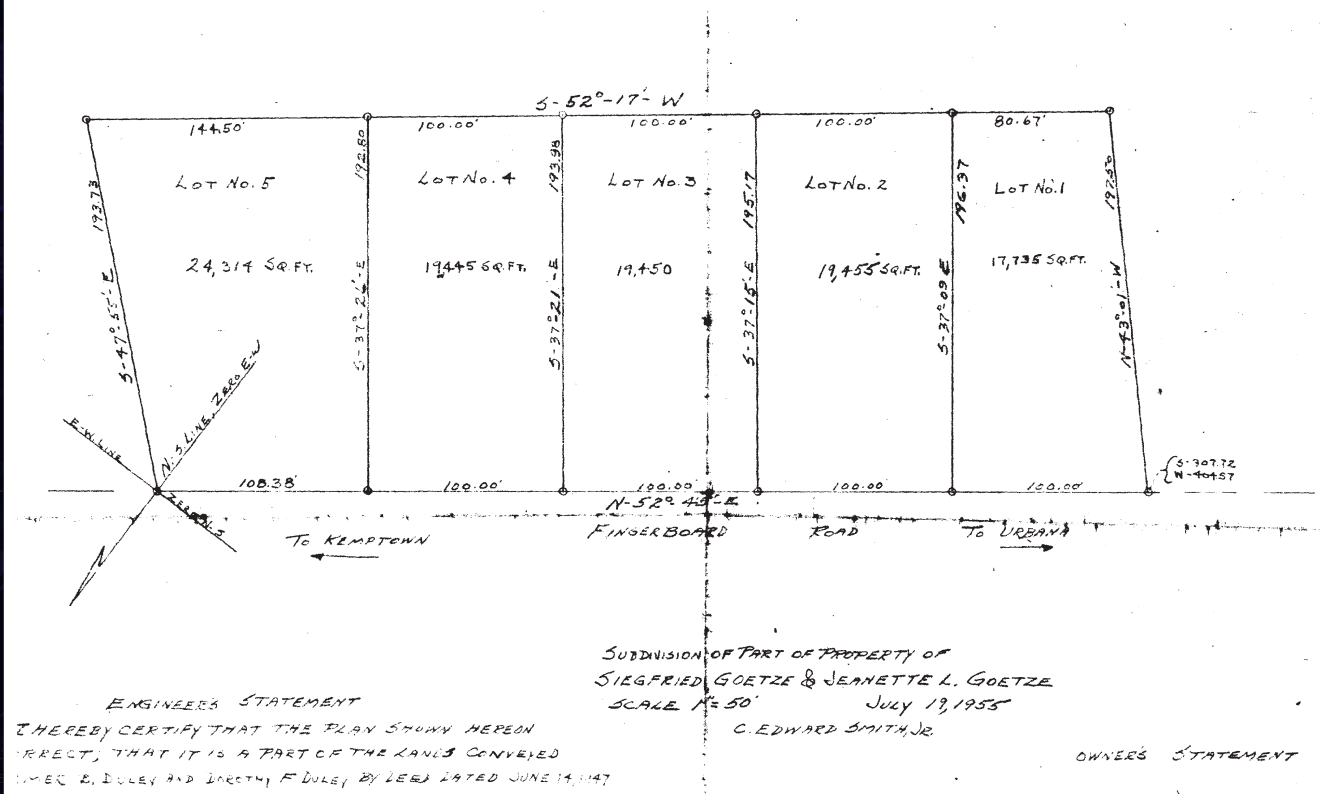 S-52°-17'-W
144.50'
100.00'
100.00'
100.00'
80.67'
193.73
192.80
193.98
195.17
196.37
197.50
LOT NO. 5
LOT NO. 4
LOT NO. 3
LOT NO. 2
LOT NO. 1
24,314 SQ.FT.
19,445 SQ.FT.
19,450
19,455 SQ.FT.
17,735 SQ.FT.
S-47°-55'-E
S-37°-21'-E
S-37°-15'-E
S-37°-09 E
N-43°-01'-W
E-W. LINE
N-S. LINE, ZERO E-W
ZERO N-S
N
S-307.72
W-404.57
108.38'
100.00'
100.00'
100.00'
100.00'
N-52° 43'-E
TO KEMPTOWN
FINGERBOARD ROAD
TO URBANA
SUBDIVISION OF PART OF PROPERTY OF
SIEGFRIED GOETZE & JEANETTE L. GOETZE
SCALE 1"= 50' JULY 19, 1955
C. EDWARD SMITH, JR.
ENGINEER'S STATEMENT
I HEREBY CERTIFY THAT THE PLAN SHOWN HEREON
RRECT; THAT IT IS A PART OF THE LANDS CONVEYED
MER B. DULEY AND DOROTHY F DULEY BY DEED DATED JUNE 14, 1947
OWNER'S STATEMENT